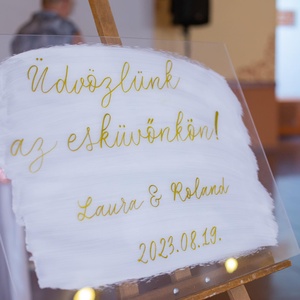 Üdvözlünk
az esküvőnkön!
Laura & Roland
2023.08.19.